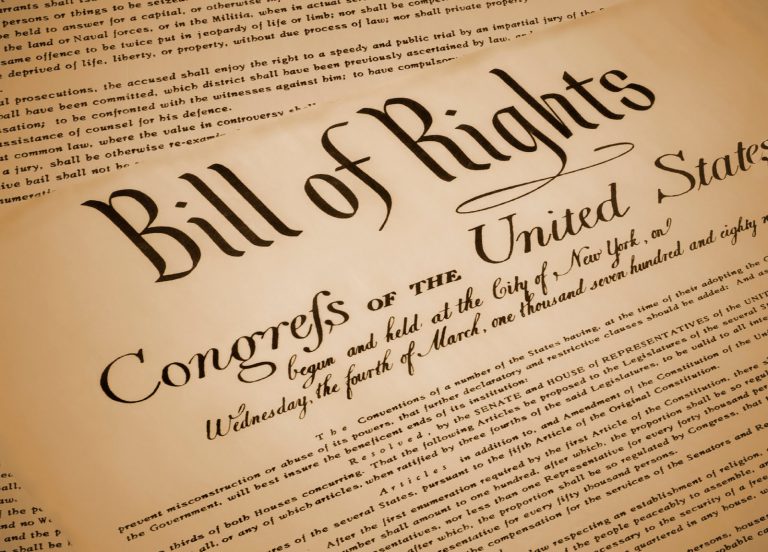 persons or things to be seized
be held to answer for a capital, or otherwise
the land or Naval forces, or in the Militia, when in actual
same offence to be twice put in jeopardy of life or limb; nor shall be
deprived of life, liberty, or property, without due process of law; nor shall private property
prosecutions, the accused shall enjoy the right to a speedy and public trial by an impartial jury of the
have been committed, which district shall have been previously ascertained by law, and
to be confronted with the witnesses against him; to have
assistance of counsel for his defence.
common law, where the value in controversy
a jury, shall be otherwise
bail shall not be
Bill of Rights
Congreſs OF THE United States
begun and held at the City of New York, on
Wednesday, the fourth of March, one thousand seven hundred and eighty
The Conventions of a number of the States having, at the time of their adopting the
prevent misconstruction or abuse of its powers, that further declaratory and restrictive clauses should be added: And
the Government, will best insure the beneficent ends of its institution:
Resolved, by the SENATE and HOUSE of REPRESENTATIVES of the
thirds of both Houses concurring. That the following Articles be proposed to the Legislatures of the several
all, or any of which articles, when ratified by three fourths of the said Legislatures, to be valid to all
Articles in addition to, and Amendment of the Constitution of the
of the several States, pursuant to the fifth Article of the Original Constitution.
After the first enumeration required by the first Article of the Constitution, there
number shall amount to one hundred, after which, the proportion shall be so
nor less than one Representative for every forty thousand
after which, the proportion shall be so regulated by Congress, that
for every fifty thousand persons.
compensation for the services of the Senators and
respecting an establishment of religion,
the people peaceably to assemble, and
necessary to the security of a free